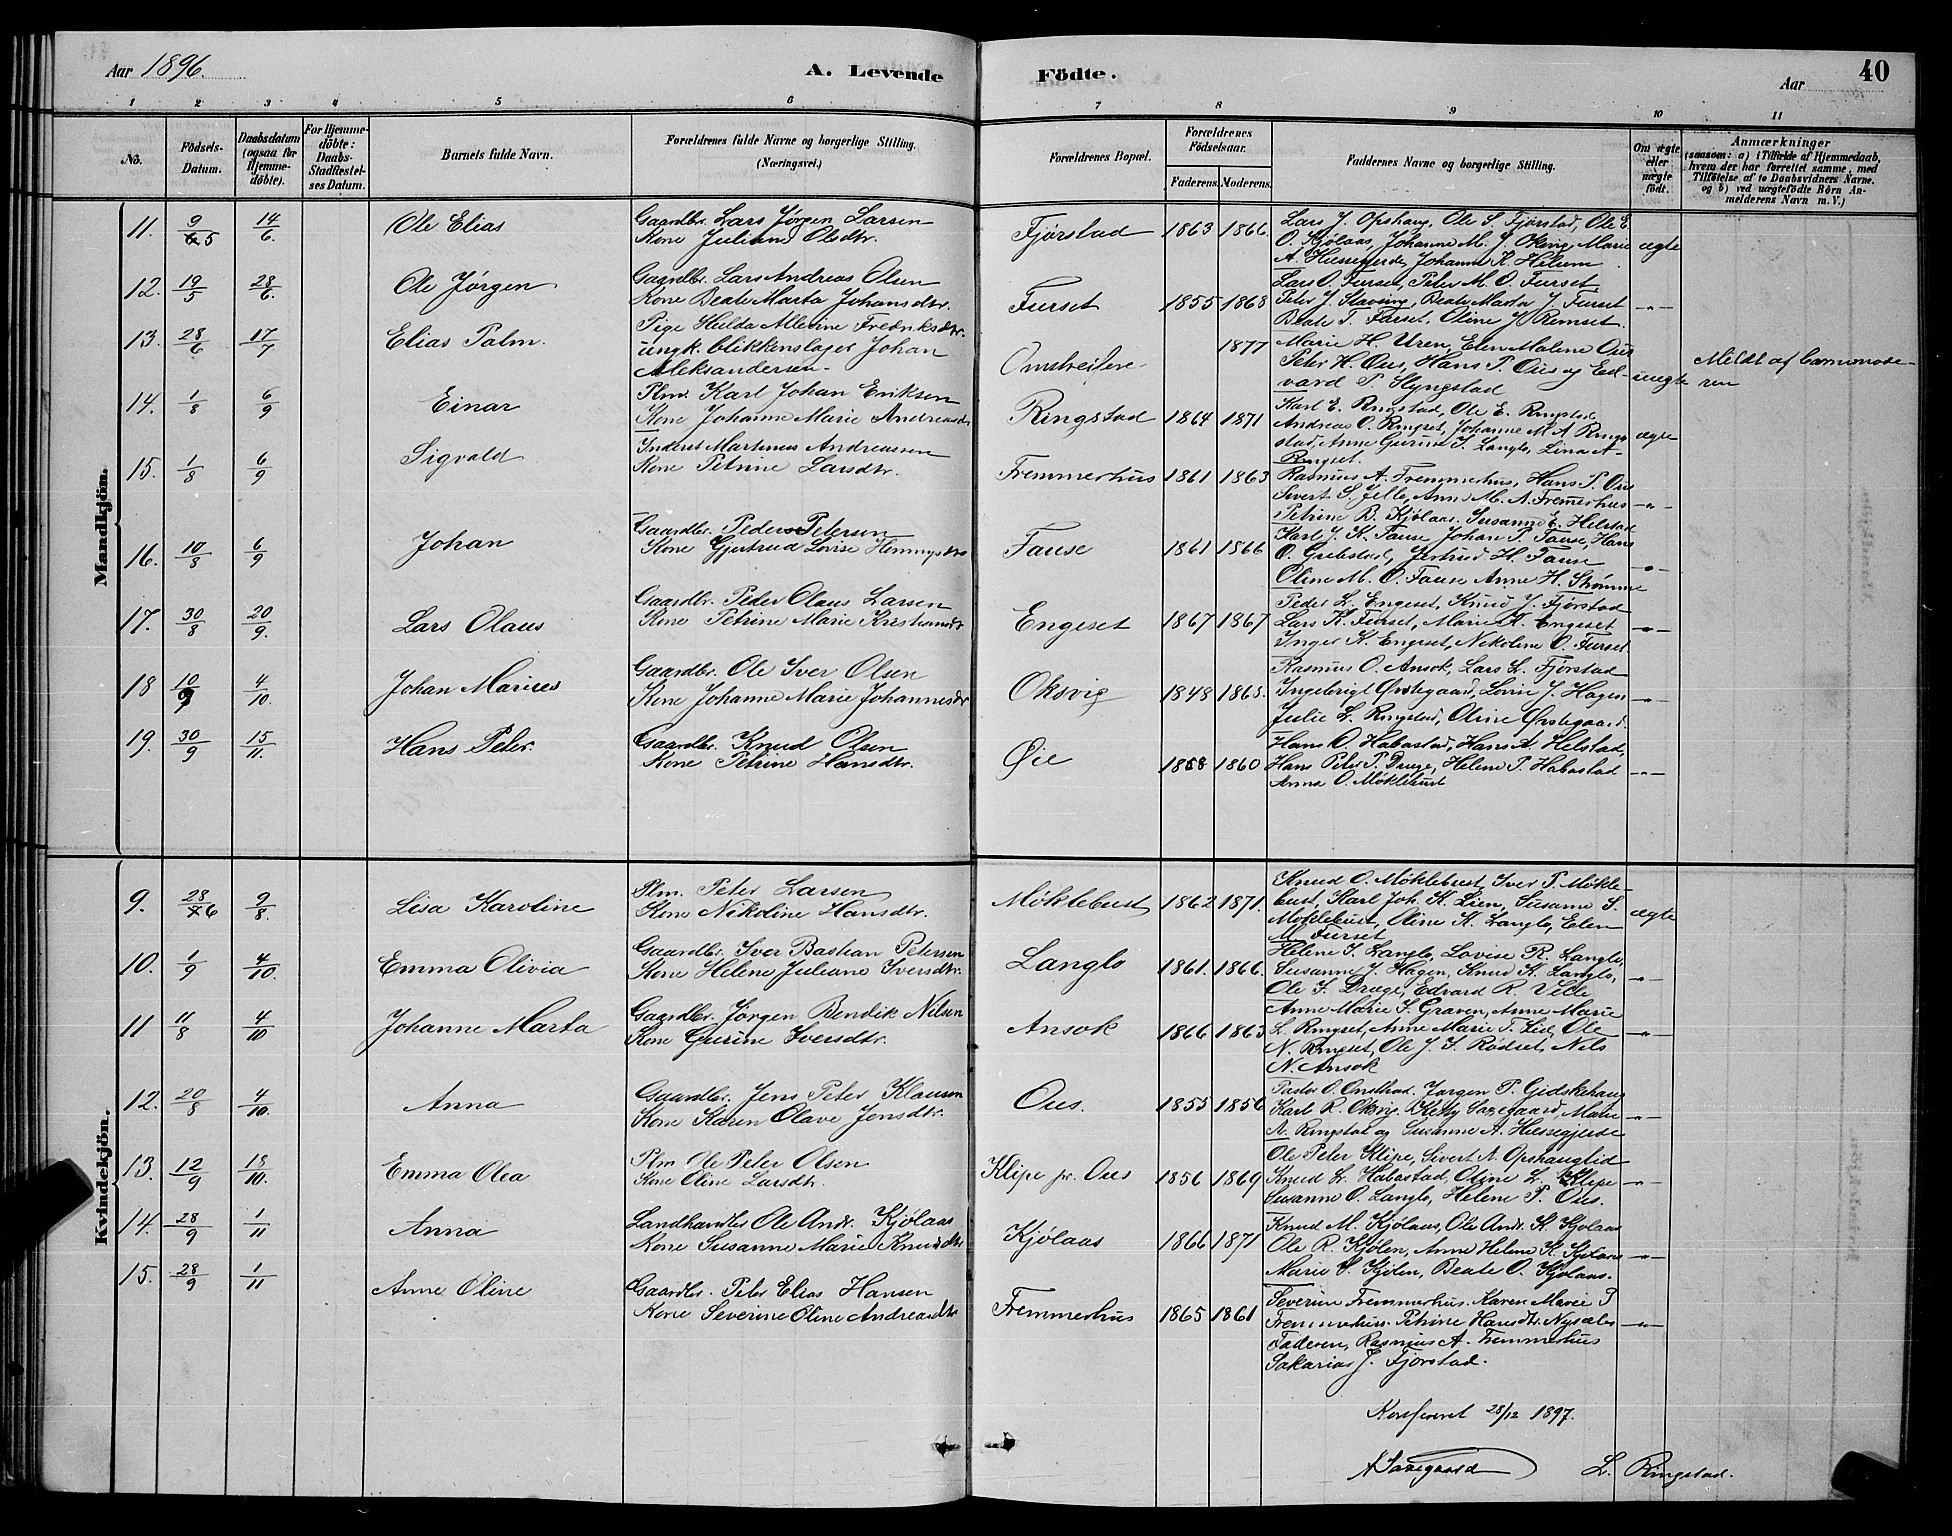 Aar 1896.
A. Levende Födte.
Aar
40
1 2 3 4 5 6 7 8 9 10 11
No.
Födsels-Datum.
Daabsdatum (ogsaa for Hjemme-döbte).
For Hjemme-döbte: Daabs-Stadfæstel-ses Datum.
Barnets fulde Navn.
Forældrenes fulde Navne og borgerlige Stilling. (Næringsvei.)
Forældrenes Bopæl.
Forældrenes Födselsaar.
Faderens. Moderens.
Faddernes Navne og borgerlige Stilling.
Om ægte eller uægte födt.
Anmærkninger (saasom: a) i Tilfælde af Hjemmedaab, hvem der har forrettet samme, med Tilföielse af to Daabsvidners Navne, og b) ved uægtefödte Börn An-melderens Navn m. V.)
Mandkjön.
11. 9/5 14/6. Ole Elias
Gaardbr. Lars Jørgen Larsen
Kone Juliane Olsdtr.
Fjørstad 1863 1866.
Lars J. Opshaug, Ole S. Fjørstad, Ole E.
O. Kjølaas, Johanne M. J. Økeng, Marie
A. Hessegjerde, Johanne K. Helsem
ægte
12. 19/5 28/6. Ole Jørgen
Gaardbr. Lars Andreas Olsen
Kone Beate Marta Johansdtr.
Furset 1855 1868
Lars O. Furset, Peter M. O. Furset,
Peter J. Staving, Beate Marta J. Furset
Beate T. Furset, Oline J. Remset.
-"-
13. 28/6 17/7 Elias Palm.
Pige Hulda Alletine Fredriksdtr.
ungk. blikkenslager Johan
Aleksandersen
Omstreifere 1877
Marie H. Uren, Elen Malene Ous
Peter H. Ous, Hans P. Ous og Ed-
vard P. Slyngstad
uægte
Meldt af barnemode-
ren
14. 1/8 6/9 Einar
Plm. Karl Johan Eriksen
Kone Johanne Marie Andreasdtr
Ringstad 1864 1871
Karl E. Ringstad, Ole E. Ringstad
Andreas O. Ringset, Johanne M. A. Ring-
stad, Anne Gurine I. Langlo, Lina A
Ringset.
ægte
15. 1/8 6/9 Sigvald
Inderst Martinus Andreassen
Kone Petrine Larsdtr.
Fremmerhus 1861 1863
Rasmus A. Fremmerhus, Hans P. Ous
Sivert S. Jelle, Anne M. A. Fremerhus
Petrine B. Kjølaas. Susanne E. Helstad
-"-
16. 10/8 6/9 Johan
Gaardbr. Peder Petersen
Kone Gjertrud Lovise Hemmigsdtr
Fause 1861 1866
Karl J. K. Fause Johan P. Fause, Hans
O. Grebstad, Jertrud H. Fause
Oline M. O. Fause Anne H. Strømme
-"-
17. 30/8 20/9. Lars Olaus
Gaardbr. Peder Olaus Larsen
Kone Petrine Marie Kristiansdtr
Engeset 1867 1867
Peder L. Engeset, Knud J. Fjørstad
Lars K. Furset, Marie K. Engeset
Inger K. Engeset, Nikoline O. Furset
-"-
18 10/9 4/10. Johan Marius
Gaardbr. Ole Iver Olsen
Kone Johanne Marie Johannesdtr
Oksvig 1848 1865.
Rasmus O. Ansok, Lars L. Fjørstad
Ingebrigt Ørstegaard, Lovise J. Hagen
Julie L. Ringstad, Oline Ørstegaard.
-"-
19. 30/9 15/11. Hans Peter.
Gaardbr. Knud Olsen
Kone Petrine Hansdtr.
Øie 1858 1860
Hans O. Habostad, Hans A. Helstad,
Hans Peter P. Druge, Helene P. Habostad
Anna O. Møklebust
-"-
Kvindekjön.
9. 28/6 9/8. Lisa Karoline
Plm. Peter Larsen
Kone Nikoline Hansdtr.
Møklebust 1862 1871.
Knud O. Møklebust, Iver P. Møkle-
bust, Karl Joh. K. Lien, Susanne S.
Møklebust, Oline K. Langlo, Elen
M. Furset
ægte
10. 1/9 4/10. Emma Olivia
Gaardbr. Iver Bastian Petersen
Kone Helene Juliane Iversdtr.
Langlo 1861. 1866.
Helene I. Langlo, Lovise R. Langlo,
Susanne J. Hagen, Knud K. Langlo,
Ole I. Druge, Edvard R. Velle
-"-
11 11/8 4/10 Johanne Marta
Gaardbr. Jørgen Bendik Nilsen
Kone Gurine Iversdtr.
Ansok 1866 1863
Anne Marie I. Graven, Anne Marie
L. Ringset, Anne Marie T. Lid, Ole
N. Ringset, Ole J. I. Rødset, Nils
N. Ansok
-"-
12. 20/8 4/10. Anna
Gaardbr. Jens Peter Klausen
Kone Karen Olave Jensdtr.
Ous. 1855 1856
Pastor O. Onstrad. Jørgen P. Gjidskehaug
Karl R. Oksvig. Ketty Saxegaard, Marie
A. Ringstad og Susanne A. Hessegjerde
-"-
13. 12/9 18/10. Emma Olea
Plm Ole Peter Olsen
Kone Oline Larsdtr.
Klipe pr. Ous 1856 1869
Ole Peter Klipe, Sivert A. Opshauglid
Knud L. Habostad, Oline L. Klipe
Susanne O. Langlo, Helene P. Ous.
-"-
14. 28/9 1/11 Anna
Landhandler Ole Andr. Kjølaas
Kone Susanne Marie Knudsdtr
Kjølaas 1866 1871
Knud M. Kjølaas, Ole Andr. K. Kjølaas
Ole R. Kjølen, Anne Helene K. Kjølaas
Marie S. Kjølen, Beate O. Kjølaas.
-"-
15. 28/9 1/11 Anne Oline
Gaardbr. Peter Elias Hansen
Kone Severine Oline Andreasdtr
Fremmerhus 1865 1861
Severine Fremmerhus. Karen Marie P
Fremmerhus. Petrine Hansdtr. Nysæter
Faderen, Rasmus A. Fremmerhus
Sakarias J. Fjørstad.
-"-
Konfereret 28/12 1897.
A Saxegaard L. Ringstad.